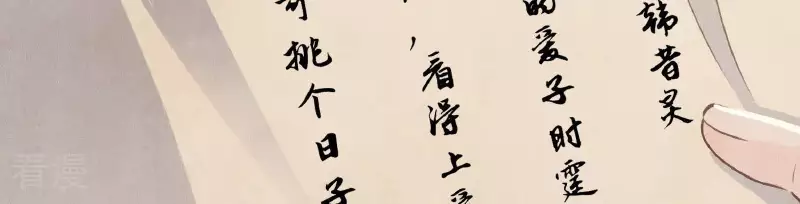 韩昔灵
的爱子时霆
，看得上
挑个日子
看漫